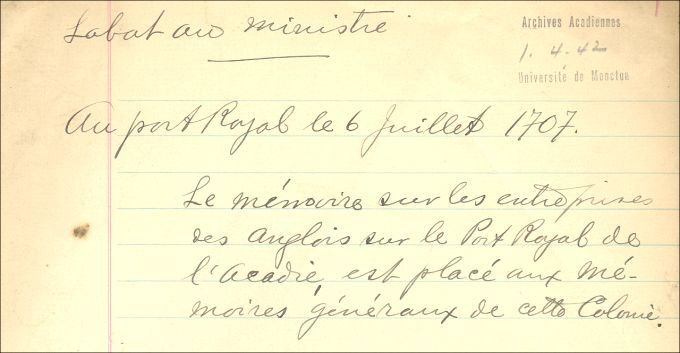 Labat au ministre
Archives Acadiennes
1. 4-42
Université de Moncton
Au port Royal le 6 Juillet 1707.
Le mémoire sur les entreprises
des anglois sur le Port Royal de
l'Acadie, est placé aux Mé-
moires généraux de cette Colonie.